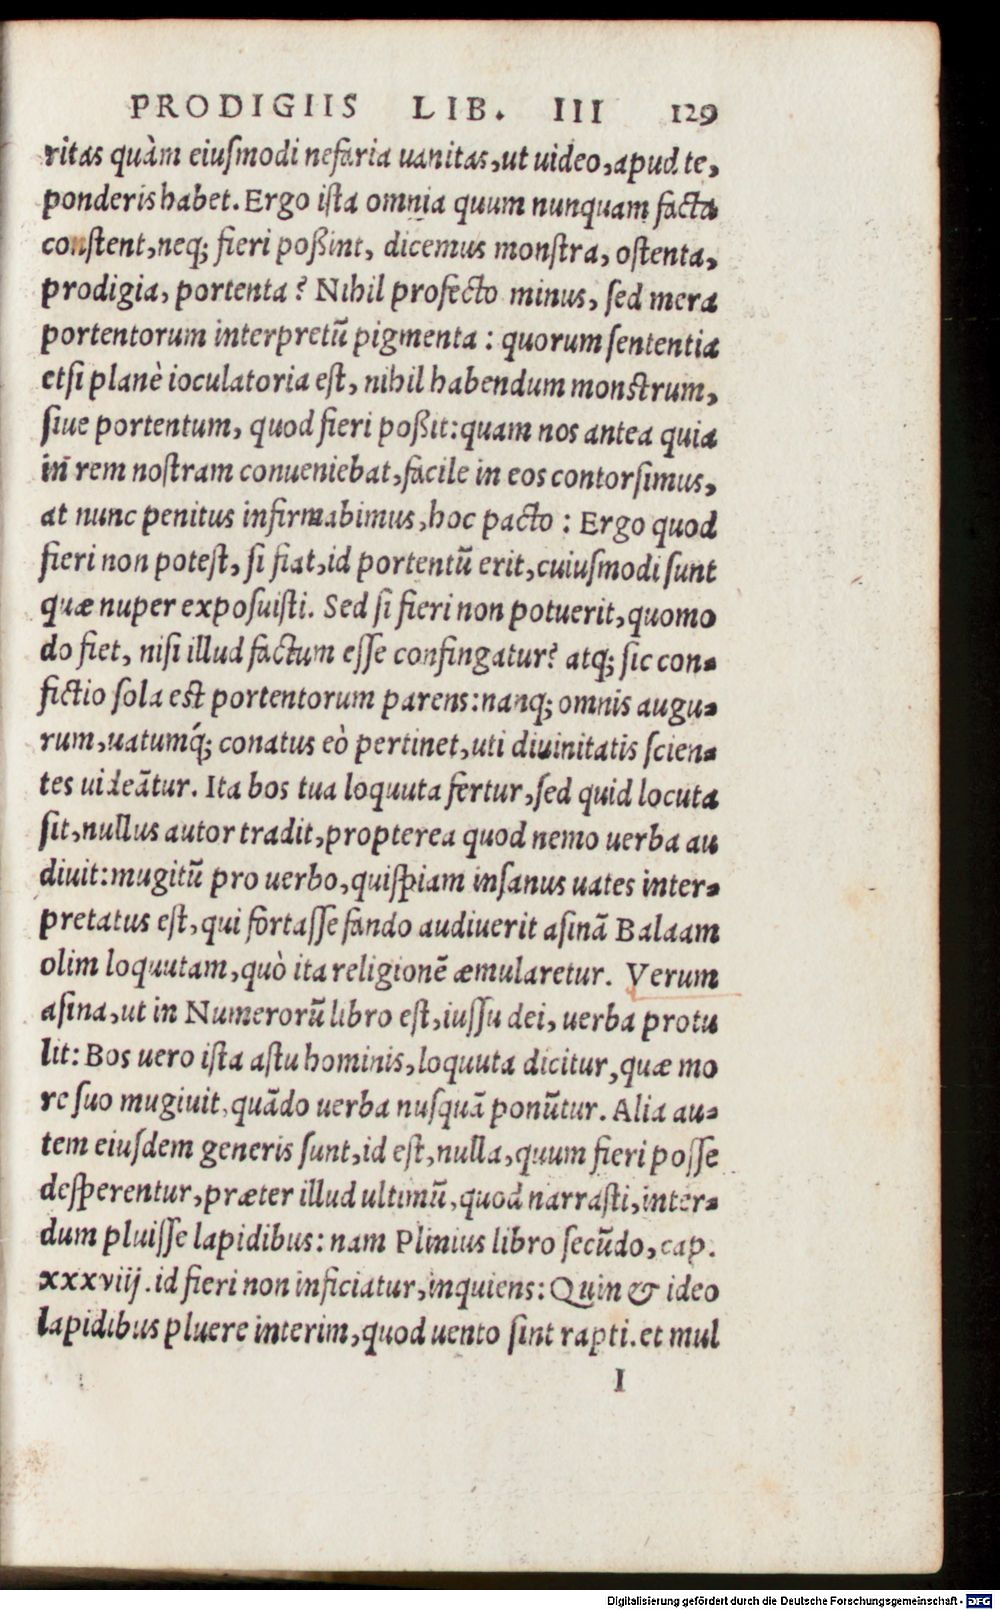 PRODIGIIS LIB. III 129
ritas quàm eiusmodi nefaria uanitas, ut uideo, apud te,
ponderis habet. Ergo ista omnia quum nunquam facta
constent, neq; fieri poßint, dicemus monstra, ostenta,
prodigia, portenta? Nihil profecto minus, sed mera
portentorum interpretũ pigmenta: quorum sententia
etsi planè ioculatoria est, nihil habendum monstrum,
siue portentum, quod fieri poßit: quam nos antea quia
in rem nostram conueniebat, facile in eos contorsimus,
at nunc penitus infirmabimus, hoc pacto: Ergo quod
fieri non potest, si fiat, id portentũ erit, cuiusmodi sunt
quæ nuper exposuisti. Sed si fieri non potuerit, quomo
do fiet, nisi illud factum esse confingatur? atq; sic con-
fictio sola est portentorum parens: nanq; omnis augu-
rum, uatumq́; conatus eò pertinet, uti diuinitatis scien-
tes uideãtur. Ita bos tua loquuta fertur, sed quid locuta
sit, nullus autor tradit, propterea quod nemo uerba au
diuit: mugitũ pro uerbo, quispiam insanus uates inter-
pretatus est, qui fortasse fando audiuerit asinã Balaam
olim loquutam, quò ita religionẽ æmularetur. Verum
asina, ut in Numerorũ libro est, iussu dei, uerba protu
lit: Bos uero ista astu hominis, loquuta dicitur, quæ mo
re suo mugiuit, quãdo uerba nusquã ponũtur. Alia au-
tem eiusdem generis sunt, id est, nulla, quum fieri posse
desperentur, præter illud ultimũ, quod narrasti, inter-
dum pluisse lapidibus: nam Plinius libro secũdo, cap.
xxxviij. id fieri non inficiatur, inquiens: Quin & ideo
lapidibus pluere interim, quod uento sint rapti. et mul
I
Digitalisierung gefördert durch die Deutsche Forschungsgemeinschaft - DFG